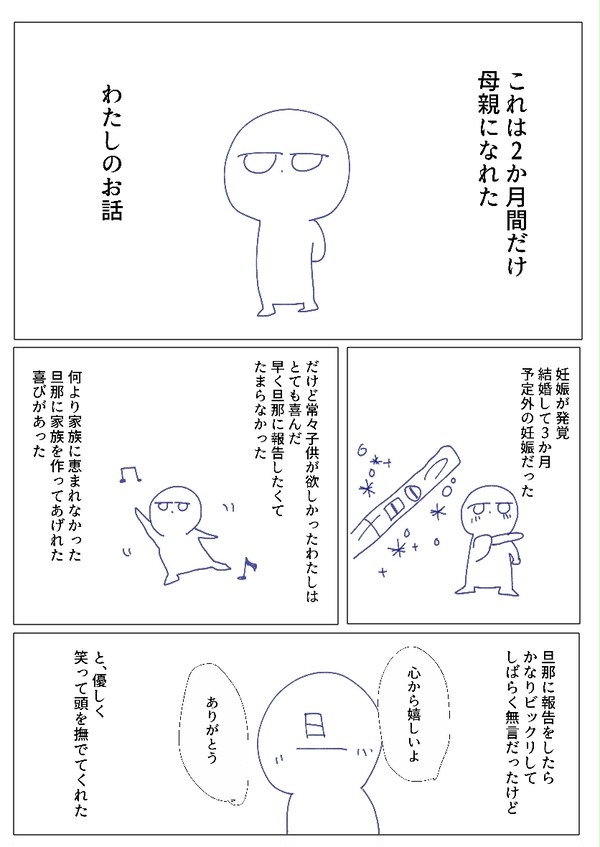 これは2か月間だけ
母親になれた
わたしのお話
妊娠が発覚
結婚して3か月
予定外の妊娠だった
だけど常々子供が欲しかったわたしは
とても喜んだ
早く旦那に報告したくて
たまらなかった
何より家族に恵まれなかった
旦那に家族を作ってあげれた
喜びがあった
旦那に報告をしたら
かなりビックリして
しばらく無言だったけど
心から嬉しいよ
日
ありがとう
と、優しく
笑って頭を撫でてくれた